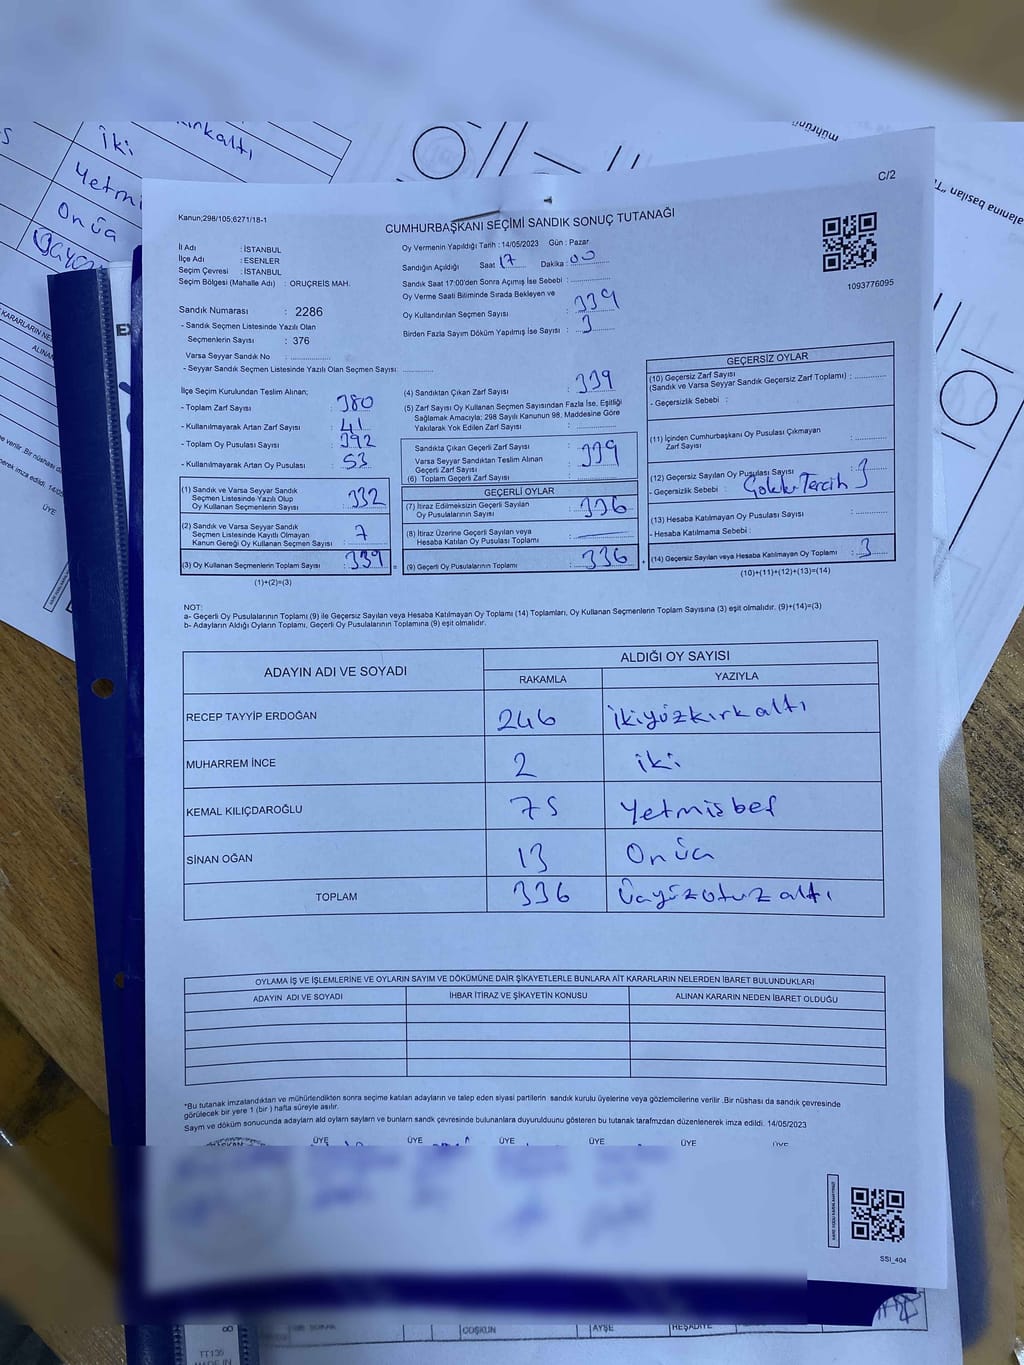 kırkaltı
iki
Yetmi
Onüç
mühürünü
alanına basılan "T
C/2
Kanun;298/105;6271/18-1
CUMHURBAŞKANI SEÇİMİ SANDIK SONUÇ TUTANAĞI
İl Adı : İSTANBUL
İlçe Adı : ESENLER
Seçim Çevresi : İSTANBUL
Seçim Bölgesi (Mahalle Adı) : ORUÇREİS MAH.
Oy Vermenin Yapıldığı Tarih : 14/05/2023 Gün : Pazar
Sandığın Açıldığı Saat : 17 Dakika : 00
Sandık Saat 17:00'den Sonra Açımış İse Sebebi :
Oy Verme Saati Bitiminde Sırada Bekleyen ve
Oy Kullandırılan Seçmen Sayısı : 339
Birden Fazla Sayım Döküm Yapılmış İse Sayısı : 3
1093776095
Sandık Numarası : 2286
- Sandık Seçmen Listesinde Yazılı Olan
Seçmenlerin Sayısı : 376
Varsa Seyyar Sandık No :
- Seyyar Sandık Seçmen Listesinde Yazılı Olan Seçmen Sayısı:
İlçe Seçim Kurulundan Teslim Alınan;
- Toplam Zarf Sayısı : 380
- Kullanılmayarak Artan Zarf Sayısı : 41
- Toplam Oy Pusulası Sayısı : 392
- Kullanılmayarak Artan Oy Pusulası : 53
(1) Sandık ve Varsa Seyyar Sandık
Seçmen Listesinde Yazılı Olup
Oy Kullanan Seçmen Sayısı : 332
(2) Sandık ve Varsa Seyyar Sandık
Seçmen Listesinde Kayıtlı Olmayan
Kanun Gereği Oy Kullanan Seçmen Sayısı : 7
(3) Oy Kullanan Seçmenlerin Toplam Sayısı : 339
(1)+(2)=(3)
(4) Sandıktan Çıkan Zarf Sayısı : 339
(5) Zarf Sayısı Oy Kullanan Seçmen Sayısından Fazla İse, Eşitliği
Sağlamak Amacıyla; 298 Sayılı Kanunun 98. Maddesine Göre
Yakılarak Yok Edilen Zarf Sayısı :
Sandıkta Çıkan Geçerli Zarf Sayısı
Varsa Seyyar Sandıktan Teslim Alınan
Geçerli Zarf Sayısı
(6) Toplam Geçerli Zarf Sayısı : 339
GEÇERLİ OYLAR
(7) İtiraz Edilmeksizin Geçerli Sayılan
Oy Pusulalarının Sayısı : 336
(8) İtiraz Üzerine Geçerli Sayılan veya
Hesaba Katılan Oy Pusulası Toplamı :
(9) Geçerli Oy Pusulalarının Toplamı : 336
GEÇERSİZ OYLAR
(10) Geçersiz Zarf Sayısı
(Sandık ve Varsa Seyyar Sandık Geçersiz Zarf Toplamı) :
- Geçersizlik Sebebi :
(11) İçinden Cumhurbaşkanı Oy Pusulası Çıkmayan
Zarf Sayısı :
(12) Geçersiz Sayılan Oy Pusulası Sayısı : 3
- Geçersizlik Sebebi : Tercih
(13) Hesaba Katılmayan Oy Pusulası Sayısı :
- Hesaba Katılmama Sebebi :
(14) Geçersiz Sayılan veya Hesaba Katılmayan Oy Toplamı : 3
(10)+(11)+(12)+(13)=(14)
NOT:
a- Geçerli Oy Pusulalarının Toplamı (9) ile Geçersiz Sayılan veya Hesaba Katılmayan Oy Toplamı (14) Toplamları, Oy Kullanan Seçmenlerin Toplam Sayısına (3) eşit olmalıdır. (9)+(14)=(3)
b- Adayların Aldığı Oyların Toplamı, Geçerli Oy Pusulalarının Toplamına (9) eşit olmalıdır.
ADAYIN ADI VE SOYADI
ALDIĞI OY SAYISI
RAKAMLA YAZIYLA
RECEP TAYYİP ERDOĞAN 246 İkiyüzkırkaltı
MUHARREM İNCE 2 iki
KEMAL KILIÇDAROĞLU 75 Yetmişbeş
SİNAN OĞAN 13 Onüç
TOPLAM 336 Üçyüzotuzaltı
OYLAMA İŞ VE İŞLEMLERİNE VE OYLARIN SAYIM VE DÖKÜMÜNE DAİR ŞİKAYETLERLE BUNLARA AİT KARARLARIN NELERDEN İBARET BULUNDUKLARI
ADAYIN ADI VE SOYADI İHBAR İTİRAZ VE ŞİKAYETİN KONUSU ALINAN KARARIN NEDEN İBARET OLDUĞU
*Bu tutanak imzalandıktan ve mühürlendikten sonra seçime katılan adayların ve talep eden siyasi partilerin sandık kurulu üyelerine veya gözlemcilerine verilir .Bir nüshası da sandık çevresinde
görülecek bir yere 1 (bir ) hafta süreyle asılır.
Sayım ve döküm sonucunda adayların ald oyların sayların ve bunların sandk çevresinde bulunanlara duyurulduunu gösteren bu tutanak tarafmzdan düzenlenerek imza edildi. 14/05/2023
BAŞKAN ÜYE ÜYE ÜYE ÜYE ÜYE ÜYE
SSI_404
COŞKUN AYŞE REŞADİYE
TT139
MADE IN